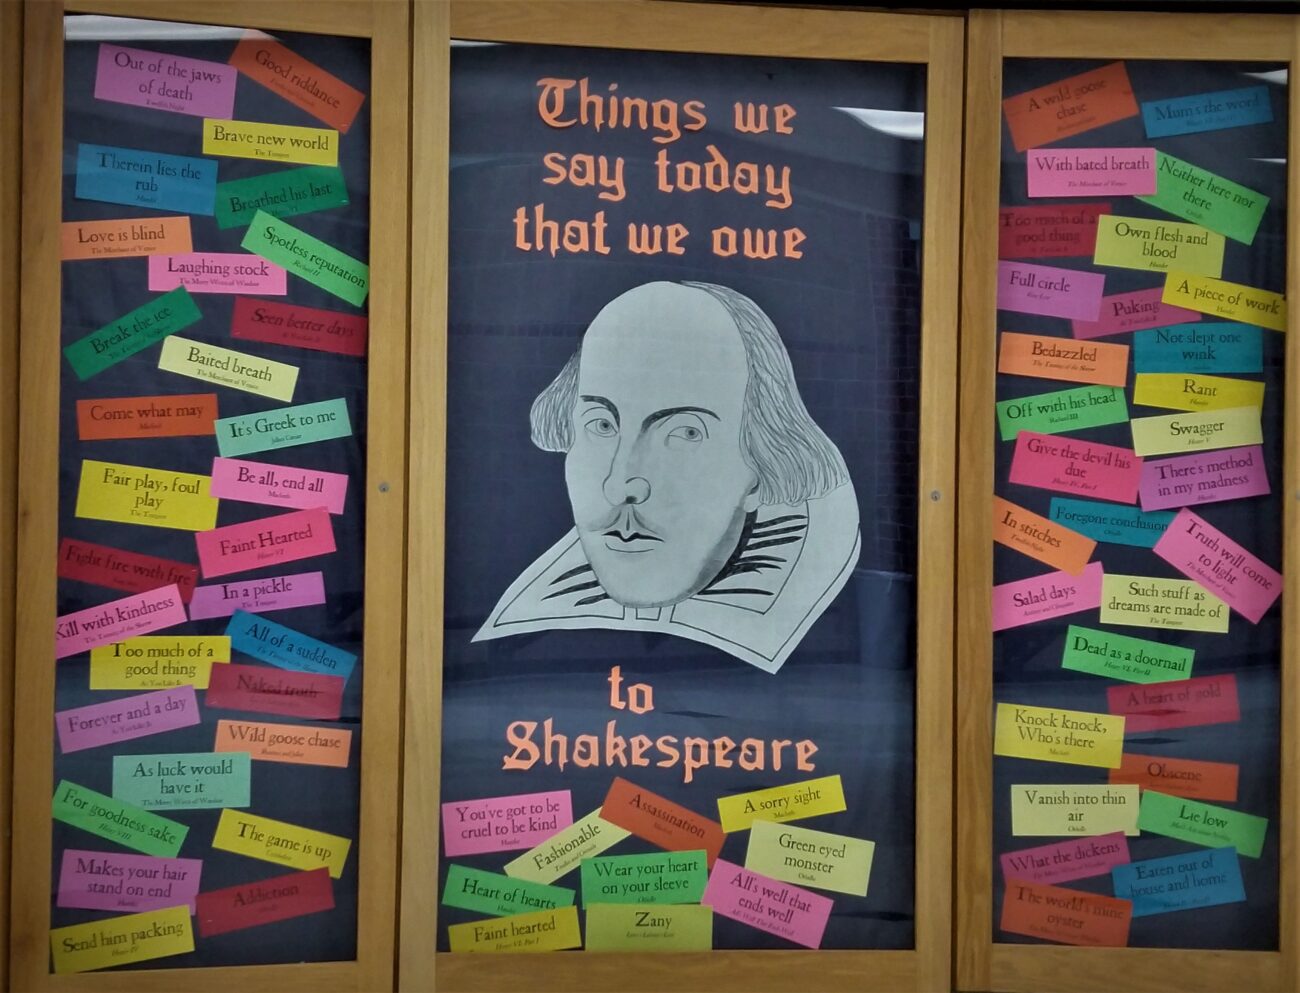 Out of the jaws
of death
Twelfth Night
Good riddance
Brave new world
The Tempest
Therein lies the
rub
Hamlet
Breathed his last
Love is blind
The Merchant of Venice
Spotless reputation
Richard II
Laughing stock
The Merry Wives of Windsor
Break the ice
Seen better days
Baited breath
The Merchant of Venice
Come what may
Macbeth
It's Greek to me
Julius Caesar
Fair play, foul
play
The Tempest
Be all, end all
Macbeth
Faint Hearted
Henry VI
Fight fire with fire
In a pickle
The Tempest
Kill with kindness
The Taming of the Shrew
All of a sudden
The Taming of the Shrew
Too much of a
good thing
As You Like It
Naked truth
Forever and a day
As You Like It
Wild goose chase
Romeo and Juliet
As luck would
have it
The Merry Wives of Windsor
For goodness sake
Henry VIII
The game is up
Makes your hair
stand on end
Hamlet
Addiction
Send him packing
Henry IV
Things we
say today
that we owe
to
Shakespeare
You've got to be
cruel to be kind
Hamlet
Fashionable
Troilus and Cressida
Assassination
Macbeth
A sorry sight
Macbeth
Green eyed
monster
Othello
Heart of hearts
Hamlet
Wear your heart
on your sleeve
Othello
All's well that
ends well
All's Well That Ends Well
Faint hearted
Henry VI, Part I
Zany
Love's Labour's Lost
A wild goose
chase
Mum's the word
With bated breath
The Merchant of Venice
Neither here nor
there
Othello
Too much of a
good thing
Own flesh and
blood
Hamlet
Full circle
King Lear
Puking
As You Like It
A piece of work
Hamlet
Bedazzled
The Taming of the Shrew
Not slept one
wink
Off with his head
Richard III
Rant
Hamlet
Swagger
Henry V
Give the devil his
due
Henry IV, Part I
There's method
in my madness
Hamlet
In stitches
Twelfth Night
Foregone conclusion
Othello
Truth will come
to light
The Merchant of Venice
Salad days
Antony and Cleopatra
Such stuff as
dreams are made of
The Tempest
Dead as a doornail
Henry VI, Part II
A heart of gold
Knock knock,
Who's there
Macbeth
Obscene
Vanish into thin
air
Othello
Lie low
What the dickens
Eaten out of
house and home
The world's mine
oyster